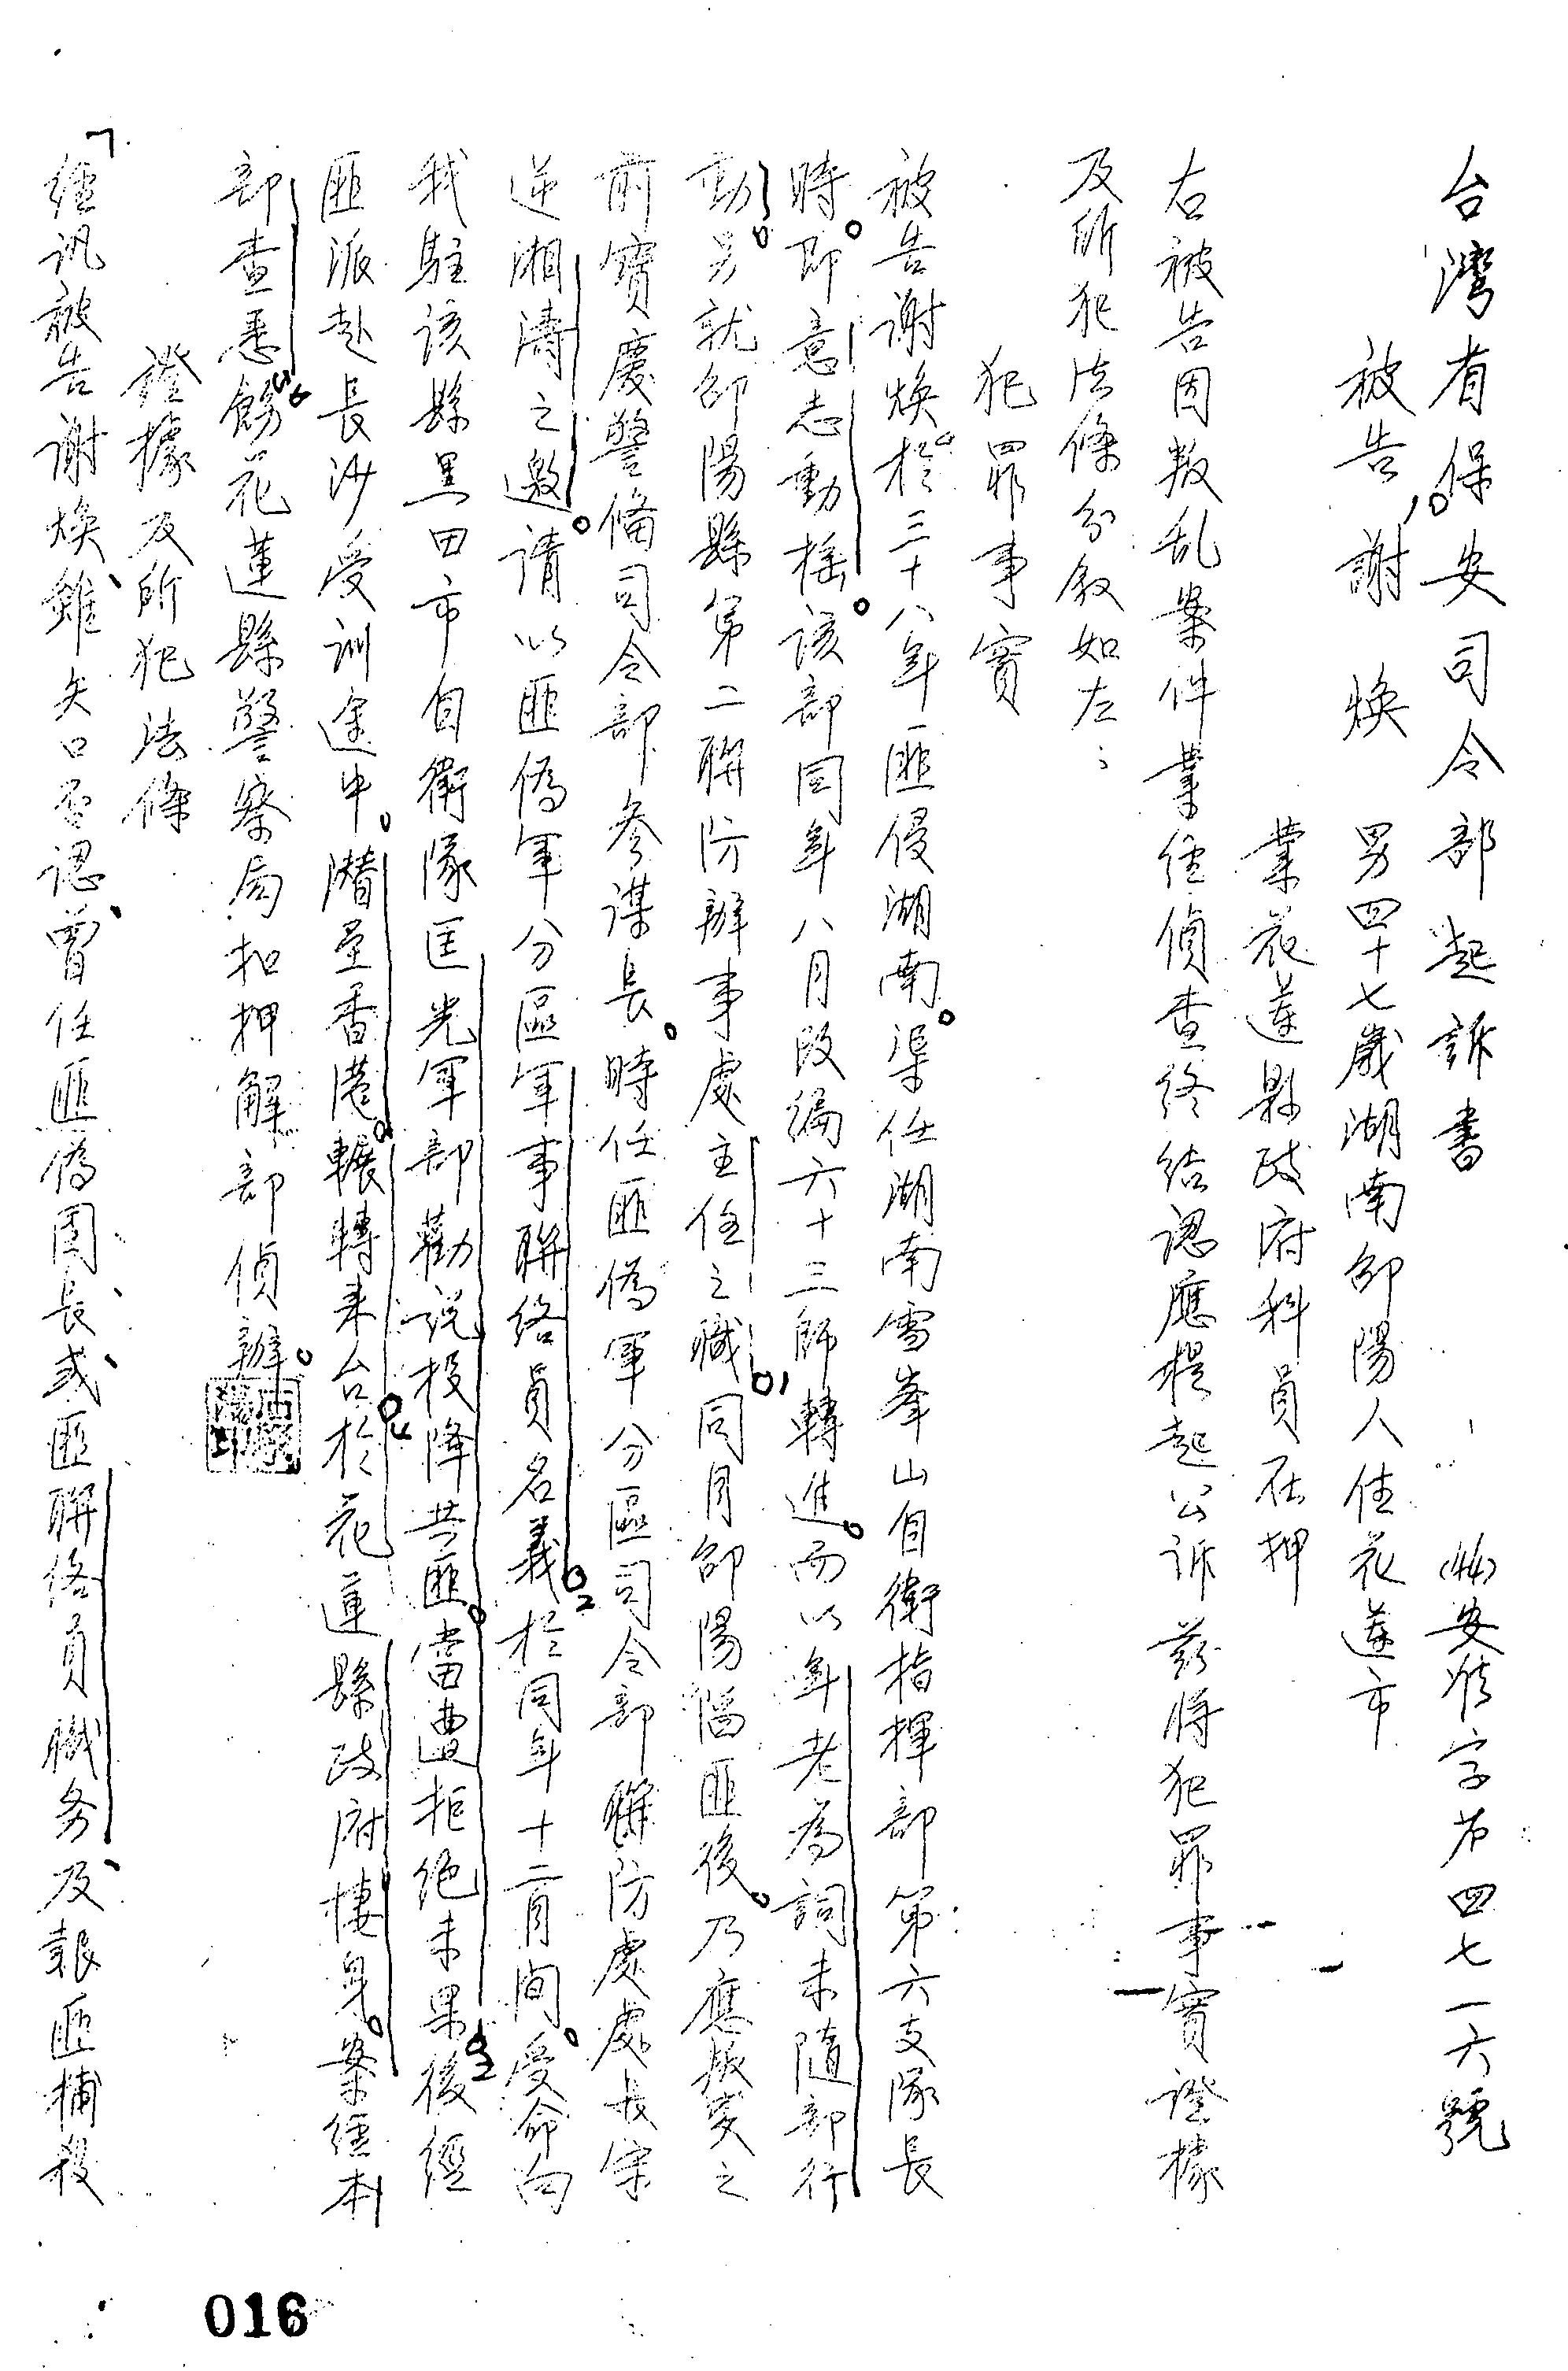 台灣省保安司令部起訴書
(44)安 字第四七一六號
被告 謝煥 男四十七歲湖南邵陽人住花蓮市
業花蓮縣政府科員在押
右被告因叛乱案件業經偵查終結認應提起公訴茲將犯罪事實證據
及所犯法條分敘如左:
犯罪事實
被告謝煥於三十八年匪侵湖南。渠任湖南雪峯山自衛指揮部第六支隊長
時。即意志動搖。該部同年八月改編六十三師轉進。而以年老為詞未隨部行
動。另就邵陽縣第二聯防辦事處主任之職。同月邵陽淪匪後。乃應叛変之
前寶慶警備司令部參謀長。時任匪偽軍分區司令部聯防處處長宋
逆湘濤之邀。請以匪偽軍分區軍事聯絡員名義。於同年十二月間。受命向
我駐該縣黑田市自衛隊匡光軍部勸說投降共匪。當遭拒絕未果。後經
匪派赴長沙受訓途中。潛至香港。輾轉来台。於花蓮縣政府棲身。案經本
部查悉。飭花蓮縣警察局扣押解部偵辦。
證據及所犯法條
經訊被告謝煥雖矢口否認、曾任匪偽團長、或匪聯絡員職务、及報匪捕殺
016